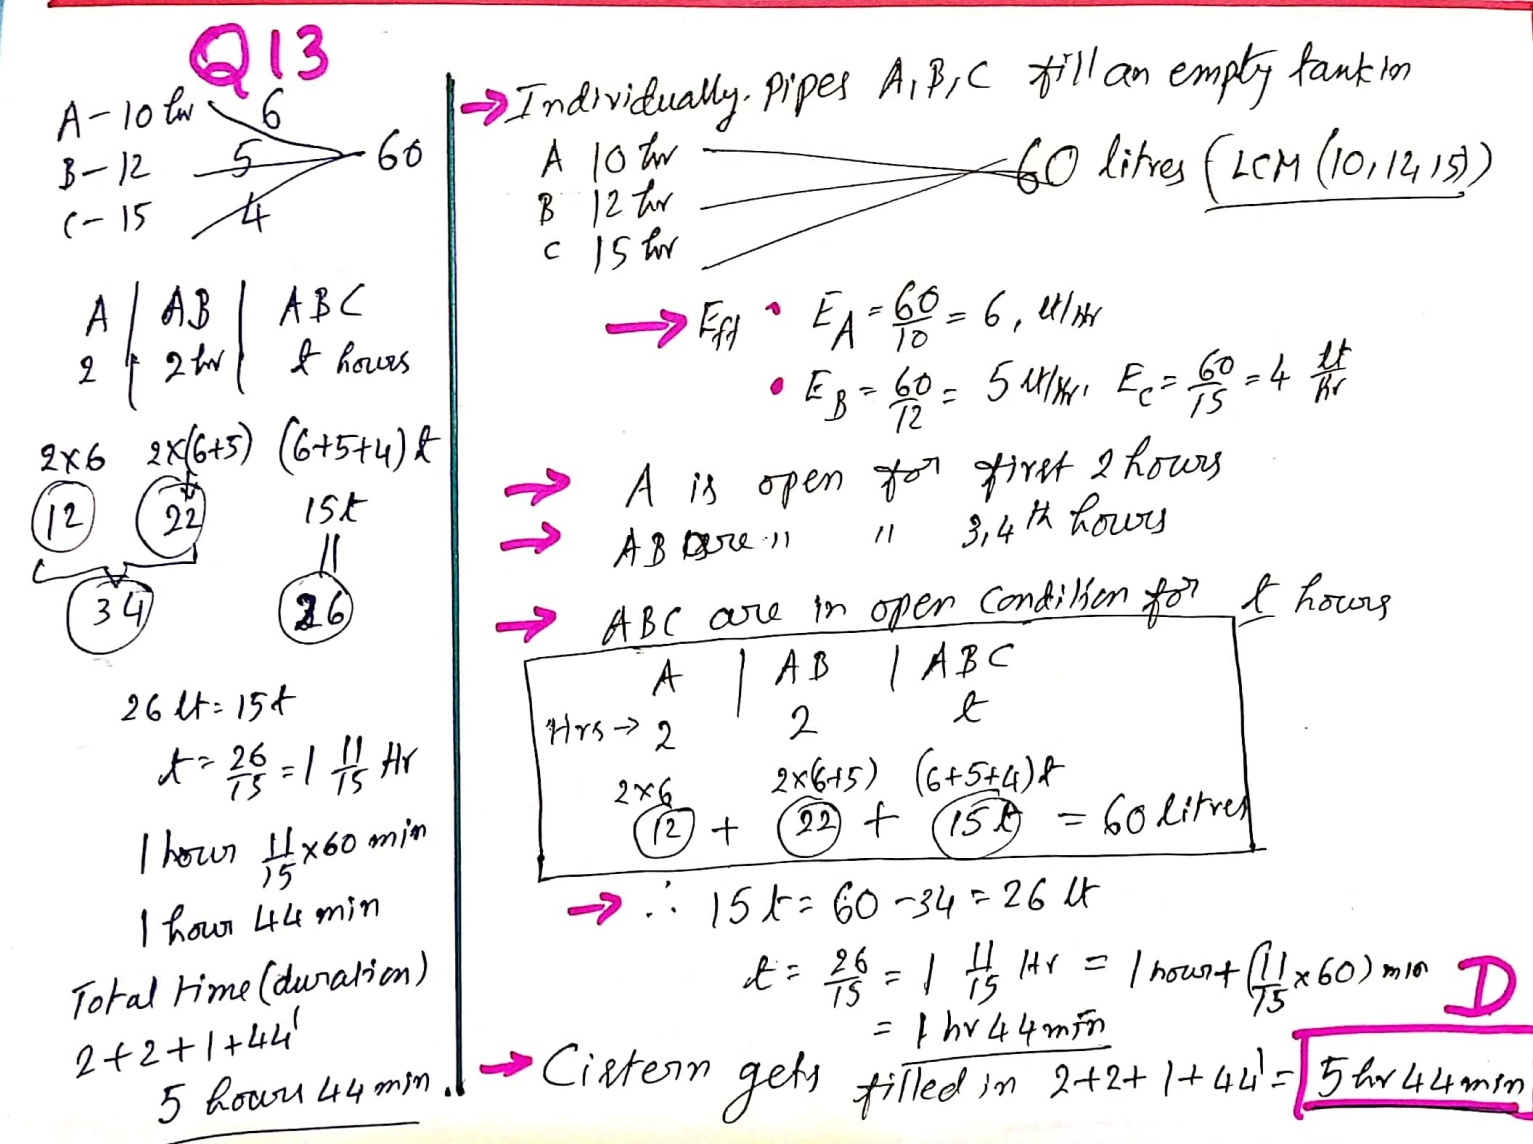 Q13
A - 10 hr 6
B - 12 5 60
C - 15 4
A | AB | ABC
2 | 2 hr | t hours
2×6 2×(6+5) (6+5+4)t
12 22 15t
34 26
26 lt = 15t
t = 26/15 = 1 11/15 Hr
1 hour 11/15 × 60 min
1 hour 44 min
Total time (duration)
2+2+1+44'
5 hours 44 min.
→ Individually. Pipes A, B, C fill an empty tank in
A 10 hr
B 12 hr 60 litres (LCM (10, 12, 15))
C 15 hr
→ Eff • E_A = 60/10 = 6, lt/Hr
• E_B = 60/12 = 5 lt/Hr, E_C = 60/15 = 4 lt/hr
→ A is open for first 2 hours
→ AB are " " 3, 4th hours
→ ABC are in open condition for t hours
A | AB | ABC
Hrs → 2 2 t
2×6 2×(6+5) (6+5+4)t
12 + 22 + 15t = 60 litres
→ ∴ 15t = 60 - 34 = 26 lt
t = 26/15 = 1 11/15 Hr = 1 hour + (11/15 × 60) min
= 1 hr 44 min
D
→ Cistern gets filled in 2+2+1+44' = 5 hr 44 min